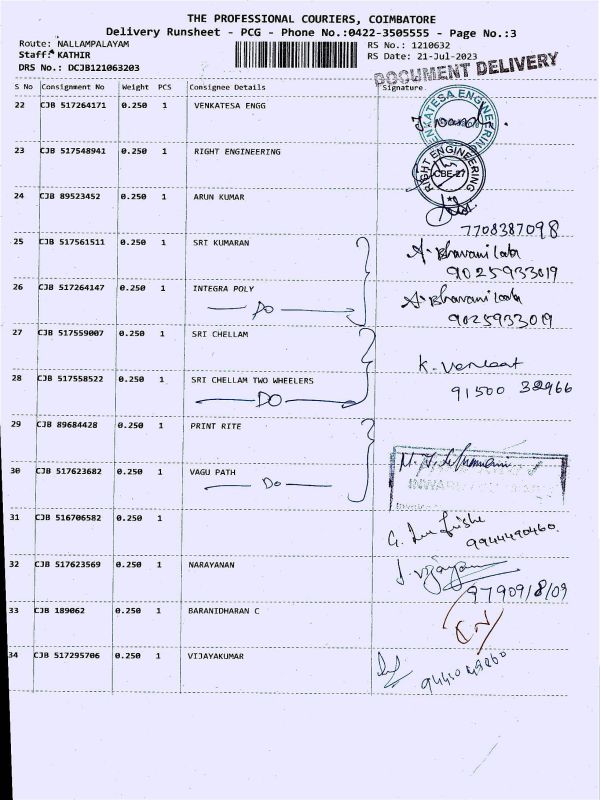 THE PROFESSIONAL COURIERS, COIMBATORE
Delivery Runsheet - PCG - Phone No.:0422-3505555 - Page No.:3
Route: NALLAMPALAYAM
Staff: KATHIR
DRS No.: DCJB121063203
RS No.: 1210632
RS Date: 21-Jul-2023
DOCUMENT DELIVERY
S No Consignment No Weight PCS Consignee Details Signature
22 CJB 517264171 0.250 1 VENKATESA ENGG
VENKATESA ENGINEERING
23 CJB 517548941 0.250 1 RIGHT ENGINEERING
RIGHT ENGINEERING
CBE-27
24 CJB 89523452 0.250 1 ARUN KUMAR
7708387098
25 CJB 517561511 0.250 1 SRI KUMARAN A. Bhavani
9025933019
26 CJB 517264147 0.250 1 INTEGRA POLY A. Bhavani
DO
9025933019
27 CJB 517559007 0.250 1 SRI CHELLAM
K. Venkat
28 CJB 517558522 0.250 1 SRI CHELLAM TWO WHEELERS
DO
29 CJB 89684428 0.250 1 PRINT RITE
30 CJB 517623682 0.250 1 VAGU PATH
Do
INWARD
31 CJB 516706582 0.250 1
9944490460
32 CJB 517623569 0.250 1 NARAYANAN
J. Vijayan
33 CJB 189062 0.250 1 BARANIDHARAN C
34 CJB 517295706 0.250 1 VIJAYAKUMAR